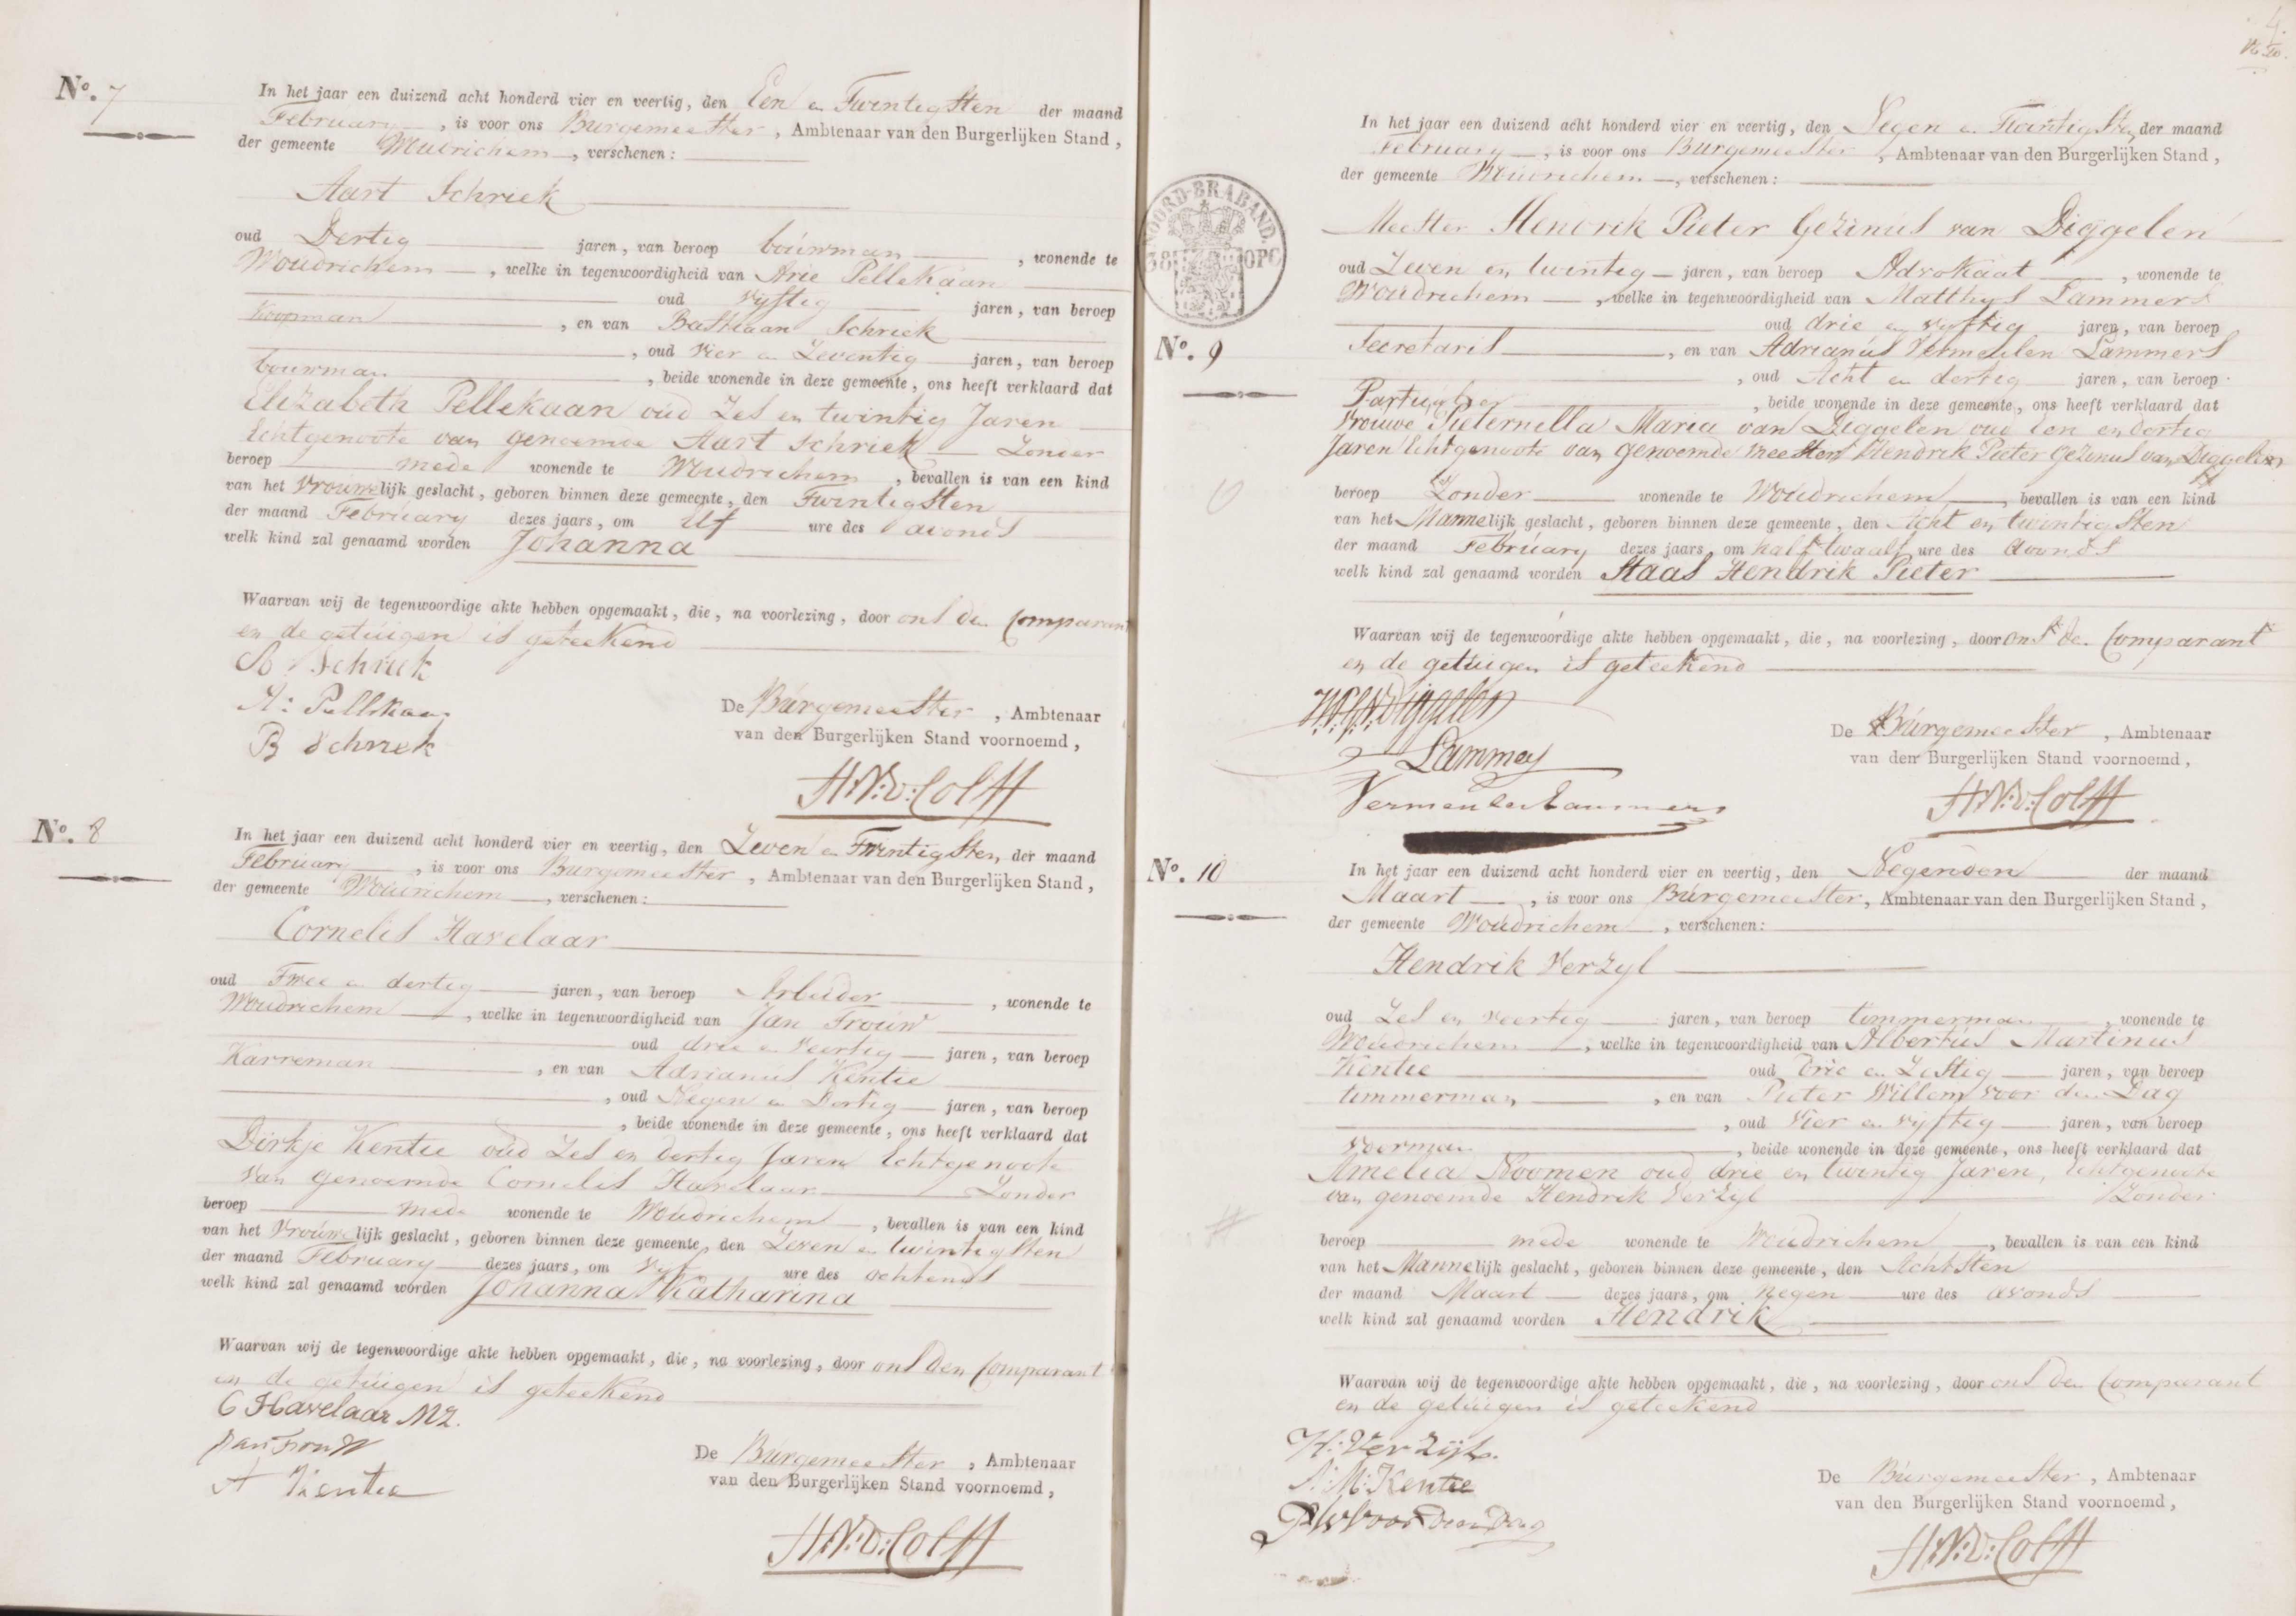 No. 7
In het jaar een duizend acht honderd vier en veertig, den Een en Twintigsten der maand
February, is voor ons Burgemeester, Ambtenaar van den Burgerlijken Stand,
der gemeente Woudrichem, verschenen:
Aart Schriek
oud Dertig jaren, van beroep bouwman, wonende te
Woudrichem, welke in tegenwoordigheid van Arie Pellekaan
oud vyftig jaren, van beroep
Koopman, en van Bastiaan Schriek
, oud vier en Zeventig jaren, van beroep
bouwman, beide wonende in deze gemeente, ons heeft verklaard dat
Elizabeth Pellekaan oud Zes en twintig Jaren
Echtgenoote van genoemde Aart Schriek Zonder
beroep mede wonende te Woudrichem, bevallen is van een kind
van het Vrouwelijk geslacht, geboren binnen deze gemeente, den Twintigsten
der maand February dezes jaars, om Elf ure des avonds
welk kind zal genaamd worden Johanna
Waarvan wij de tegenwoordige akte hebben opgemaakt, die, na voorlezing, door ons den Comparant
en de getuigen is geteekend
A. Schriek
A: Pellekaan
B Schriek
De Burgemeester, Ambtenaar
van den Burgerlijken Stand voornoemd,
H:N:V:Colff
No. 8
In het jaar een duizend acht honderd vier en veertig, den Zeven en Twintigsten, der maand
February, is voor ons Burgemeester, Ambtenaar van den Burgerlijken Stand,
der gemeente Woudrichem, verschenen:
Cornelis Havelaar
oud Twee en dertig jaren, van beroep Arbeider, wonende te
Woudrichem, welke in tegenwoordigheid van Jan Trouw
oud drie en Veertig jaren, van beroep
Karreman, en van Adrianus Kentie
, oud Negen en Dertig jaren, van beroep
, beide wonende in deze gemeente, ons heeft verklaard dat
Dirkje Kentie oud Zes en dertig Jaren Echtgenoote
van genoemde Cornelis Havelaar Zonder
beroep mede wonende te Woudrichem, bevallen is van een kind
van het Vrouwelijk geslacht, geboren binnen deze gemeente, den Zeven en twintigsten
der maand February dezes jaars, om vyf ure des ochtends
welk kind zal genaamd worden Johanna Katharina
Waarvan wij de tegenwoordige akte hebben opgemaakt, die, na voorlezing, door ons den Comparant
en de getuigen is geteekend
C Havelaar MZ.
Jan Trouw
A Kentie
De Burgemeester, Ambtenaar
van den Burgerlijken Stand voornoemd,
H:N:V:Colff
4
NOORD-BRABAND.
38 OPC
In het jaar een duizend acht honderd vier en veertig, den Negen en Twintigsten der maand
February, is voor ons Burgemeester, Ambtenaar van den Burgerlijken Stand,
der gemeente Woudrichem, verschenen:
Meester Hendrik Pieter Gezinus van Diggelen
oud Zeven en twintig jaren, van beroep Advokaat, wonende te
Woudrichem, welke in tegenwoordigheid van Matthys Lammers
oud drie en vyftig jaren, van beroep
No. 9
Secretaris, en van Adrianus Vermeulen Lammers
, oud Acht en dertig jaren, van beroep
Particulier, beide wonende in deze gemeente, ons heeft verklaard dat
Vrouwe Pieternella Maria van Diggelen oud Een en dertig
Jaren Echtgenoote van genoemde Meester Hendrik Pieter Gezinus van Diggelen
beroep Zonder wonende te Woudrichem, bevallen is van een kind
van het Mannelijk geslacht, geboren binnen deze gemeente, den Acht en twintigsten
der maand February dezes jaars, om half twaalf ure des avonds
welk kind zal genaamd worden Staas Hendrik Pieter
Waarvan wij de tegenwoordige akte hebben opgemaakt, die, na voorlezing, door ons den Comparant
en de getuigen is geteekend
H.P.G.v.Diggelen
Lammers
Vermeulen Lammers
De Burgemeester, Ambtenaar
van den Burgerlijken Stand voornoemd,
H:N:V:Colff
No. 10
In het jaar een duizend acht honderd vier en veertig, den Negenden der maand
Maart, is voor ons Burgemeester, Ambtenaar van den Burgerlijken Stand,
der gemeente Woudrichem, verschenen:
Hendrik Verzyl
oud Zes en veertig jaren, van beroep timmerman, wonende te
Woudrichem, welke in tegenwoordigheid van Albertus Martinus
Kentie oud Drie en Zestig jaren, van beroep
timmerman, en van Pieter Willem voor den Dag
, oud Vier en vyftig jaren, van beroep
Voerman, beide wonende in deze gemeente, ons heeft verklaard dat
Amelia Noomen oud drie en twintig Jaren, Echtgenoote
van genoemde Hendrik Verzyl Zonder
beroep mede wonende te Woudrichem, bevallen is van een kind
van het Mannelijk geslacht, geboren binnen deze gemeente, den Achtsten
der maand Maart dezes jaars, om Negen ure des avonds
welk kind zal genaamd worden Hendrik
Waarvan wij de tegenwoordige akte hebben opgemaakt, die, na voorlezing, door ons den Comparant
en de getuigen is geteekend
H: Verzijl.
A:M:Kentie
PW voor den Dag
De Burgemeester, Ambtenaar
van den Burgerlijken Stand voornoemd,
H:N:V:Colff